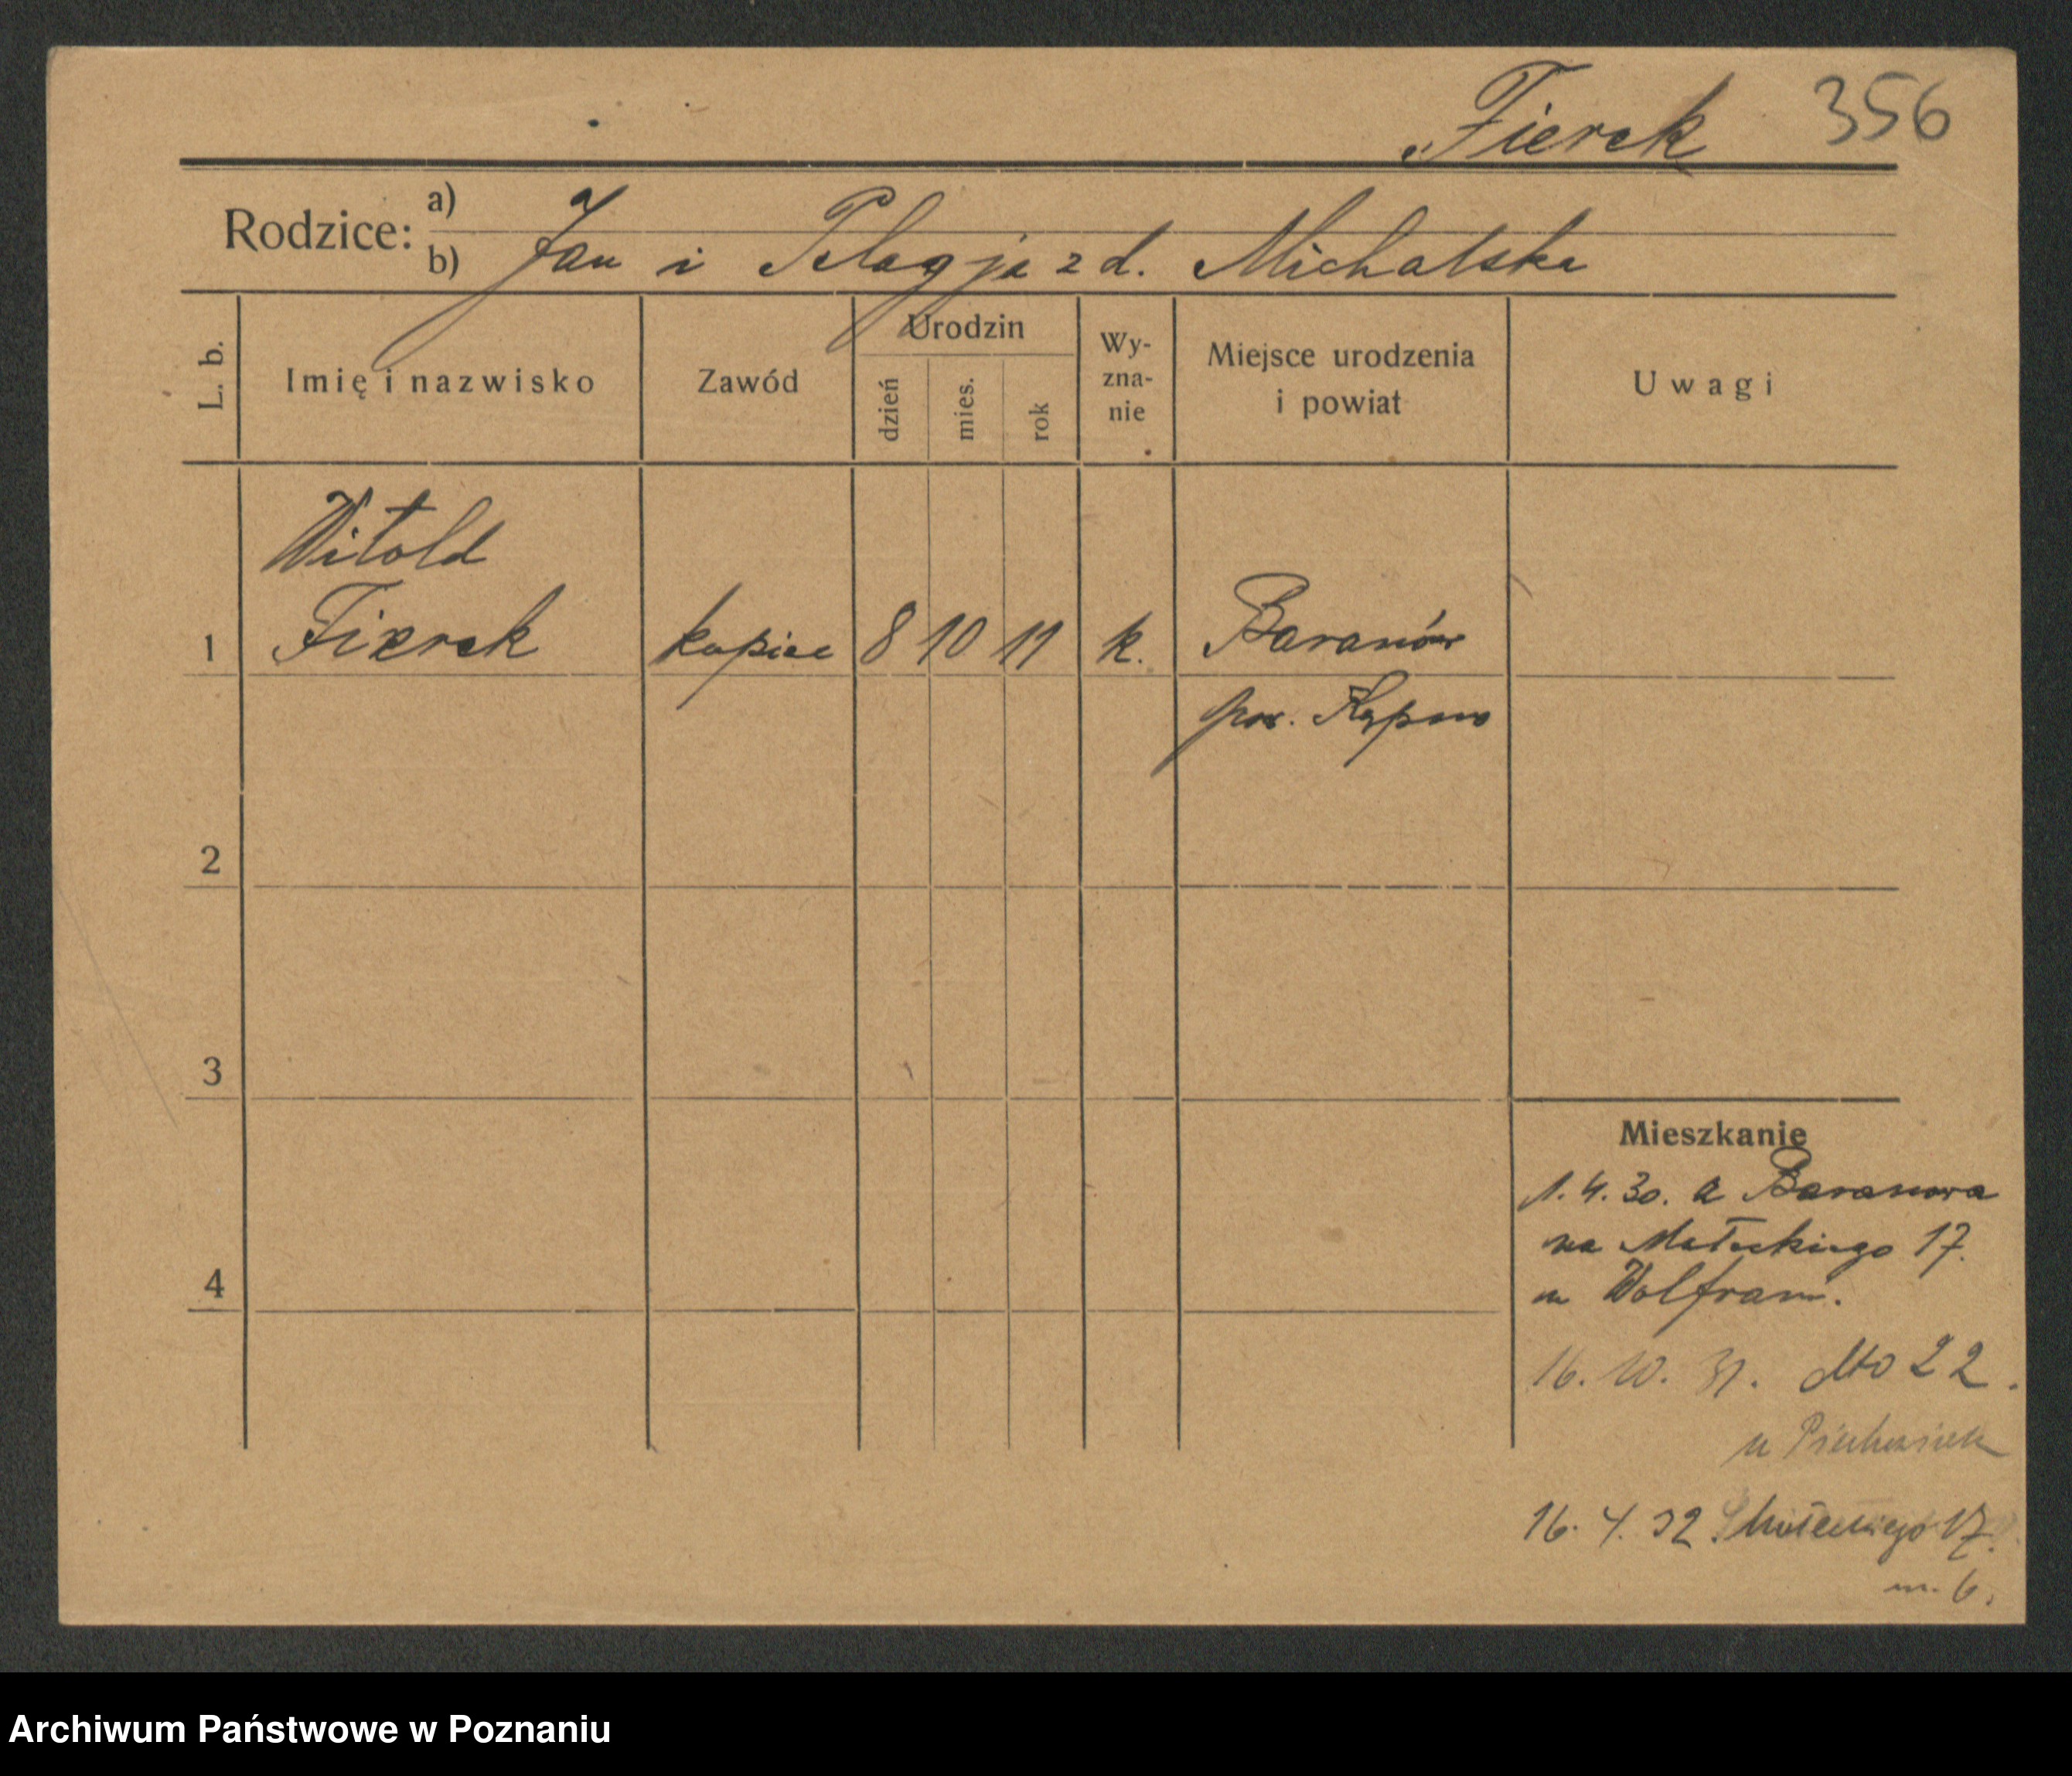 Fierek 356
Rodzice: a)
b) Jan i Pelagja z d. Michalska
L. b.
Imię i nazwisko
Zawód
Urodzin
dzień
mies.
rok
Wy-
zna-
nie
Miejsce urodzenia
i powiat
Uwagi
Witold
1 Fierek kupiec 8 10 11 k. Baranów
pow. Kępno
2
3
4
Mieszkanie
1. 4. 30. z Baranowa
na Małeckiego 17.
u Wolfram.
16. 10. 31. dto 22.
u
16. 4. 32. Małeckiego 17.
m. 6.
Archiwum Państwowe w Poznaniu